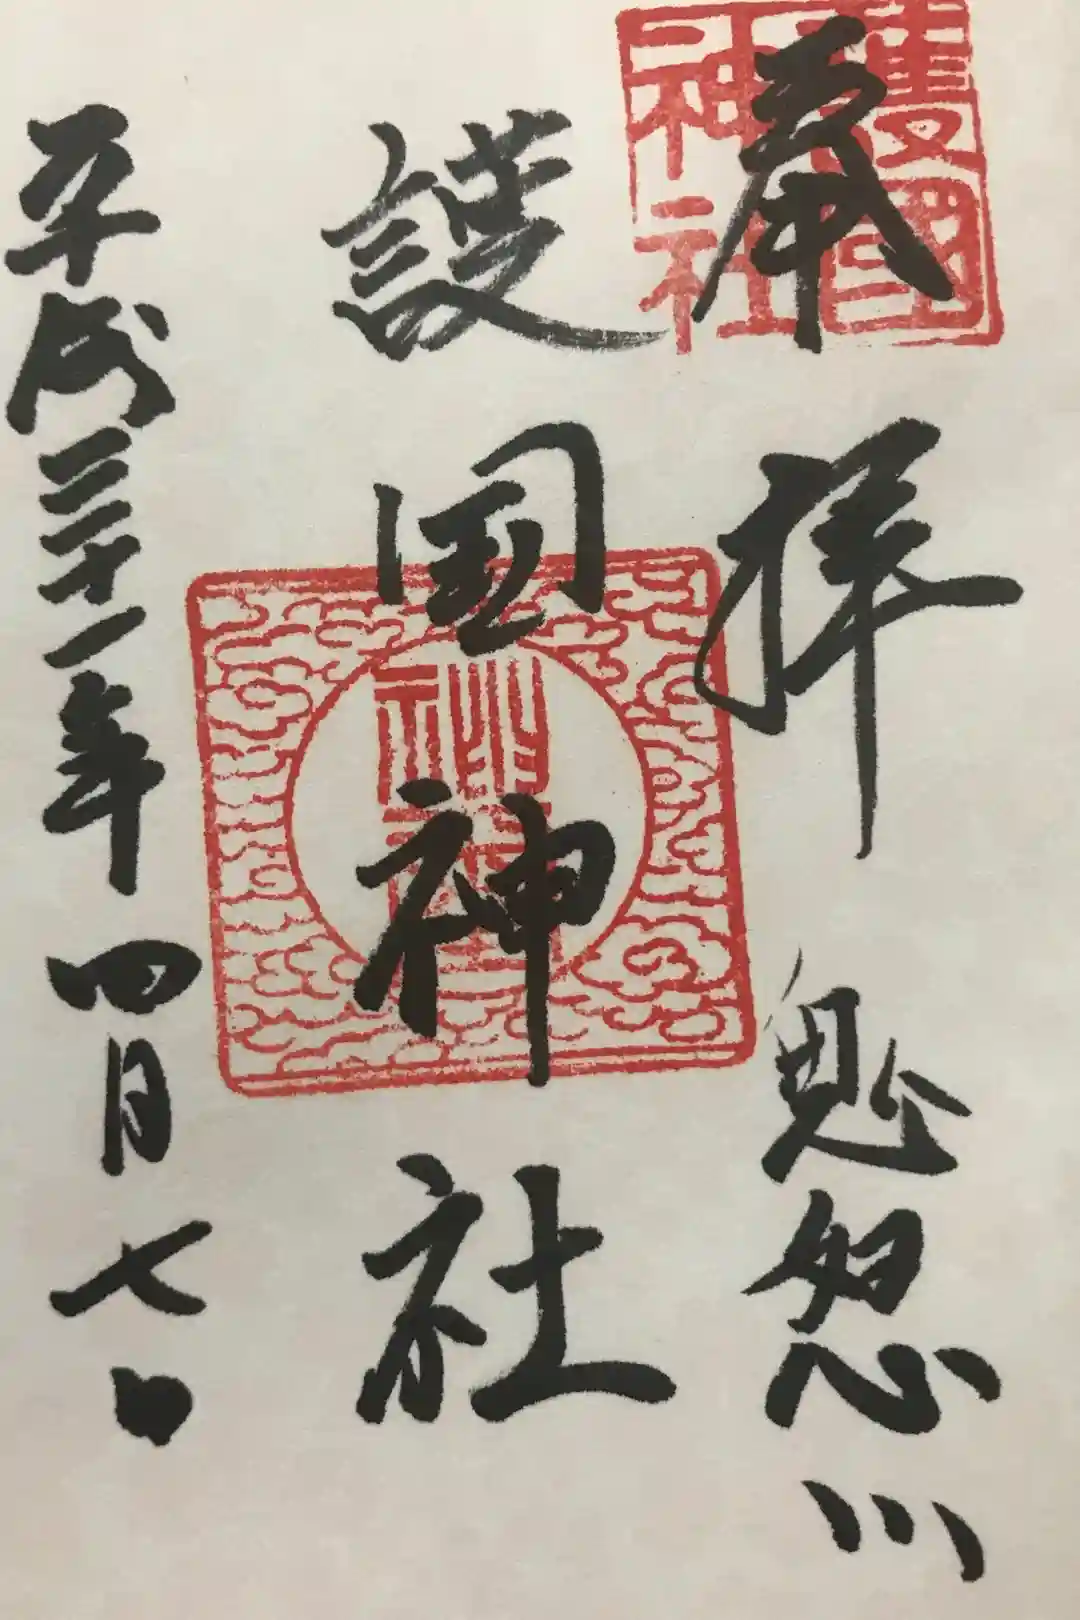 奉拝 鬼怒川
護国神社
平成三十一年四月七日
護國
神社